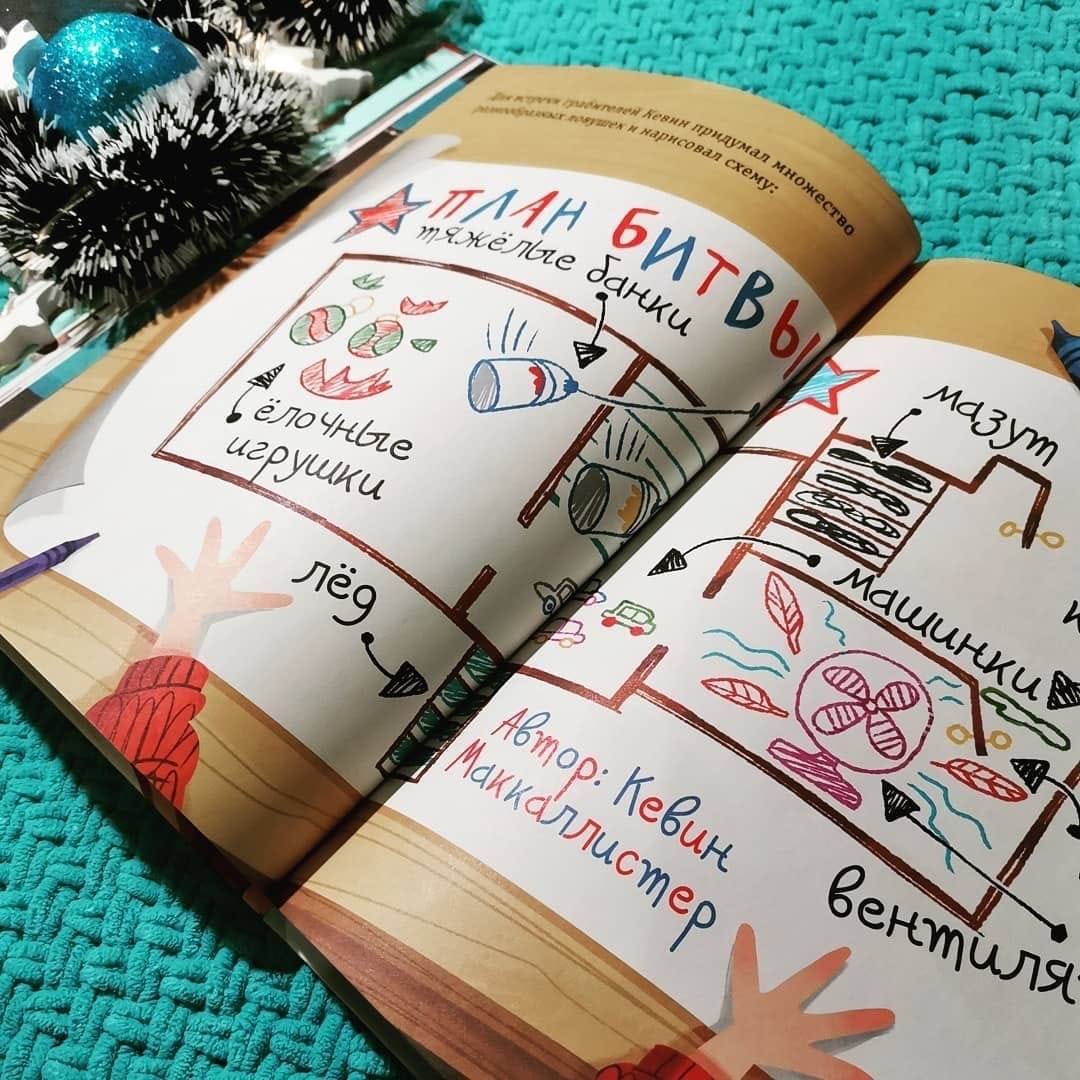 Для встречи грабителей Кевин придумал множество
разнообразных ловушек и нарисовал схему:
ПЛАН БИТВЫ
тяжёлые банки
ёлочные
игрушки
лёд
мазут
машинки
Автор: Кевин
Маккаллистер
вентиля